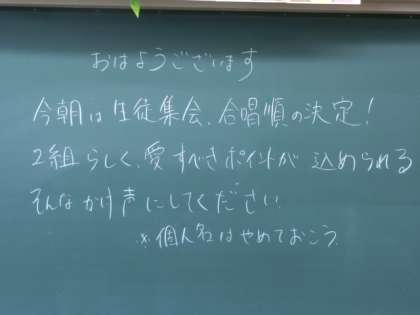 おはようございます
今朝は生徒集会、合唱順の決定!
2組らしく、愛すべきポイントが込められる
そんなかけ声にしてください
※個人名はやめておこう